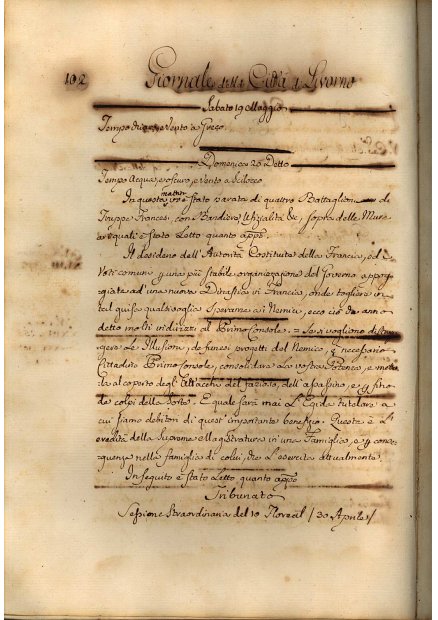 102
Giornale della Città di Livorno
Sabato 19 Maggio
Tempo Vento a Greco.
Domenica 20 Detto
Tempo Acqua, e oscuro, e Vento a Scilocco
In questa mattina è stato parata di quattro Battaglioni di
Truppe Francesi, con Bandiere, Ufizialità &c, sopra delle Mura
a' quali è stato Letto quanto app.e
Il desiderio dell'Autorità Costituite della Francia, ed i
Voti comuni una più stabile organizazione del Governo appog
giata ad una nuova Dinastia in Francia, onde togliere in
tal guisa qualsivoglia Speranza ai Nemici, ecco ciò che anno
detto molti indirizzi al Primo Console. = Se si vogliono
gere Le Illusioni, de funesti progetti del Nemico, è necessario
Cittadino Primo Console, consolidare la vostra Potenza, e
la al coperto degli Attacchi del fazioso, dell'assassino, e fino
de' colpi della Sorte. E quale sarà mai L'Egida tutelare a
cui siamo debitori di quest'importante benefizio. Questa è L'
eredità della Suprema Magistratura in una Famiglia, e conse
guenza nella famiglia di colui, che L'esercita attualmente.
In seguito è stato Letto quanto app.e
Tribunato
Sessione Straordinaria del 10 Floreal / 30 Aprile /